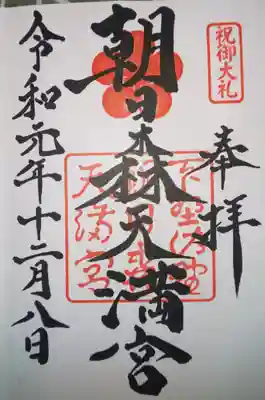 祝御大礼
奉拝
朝日森天満宮
令和元年十二月八日
下野佐野
天満宮